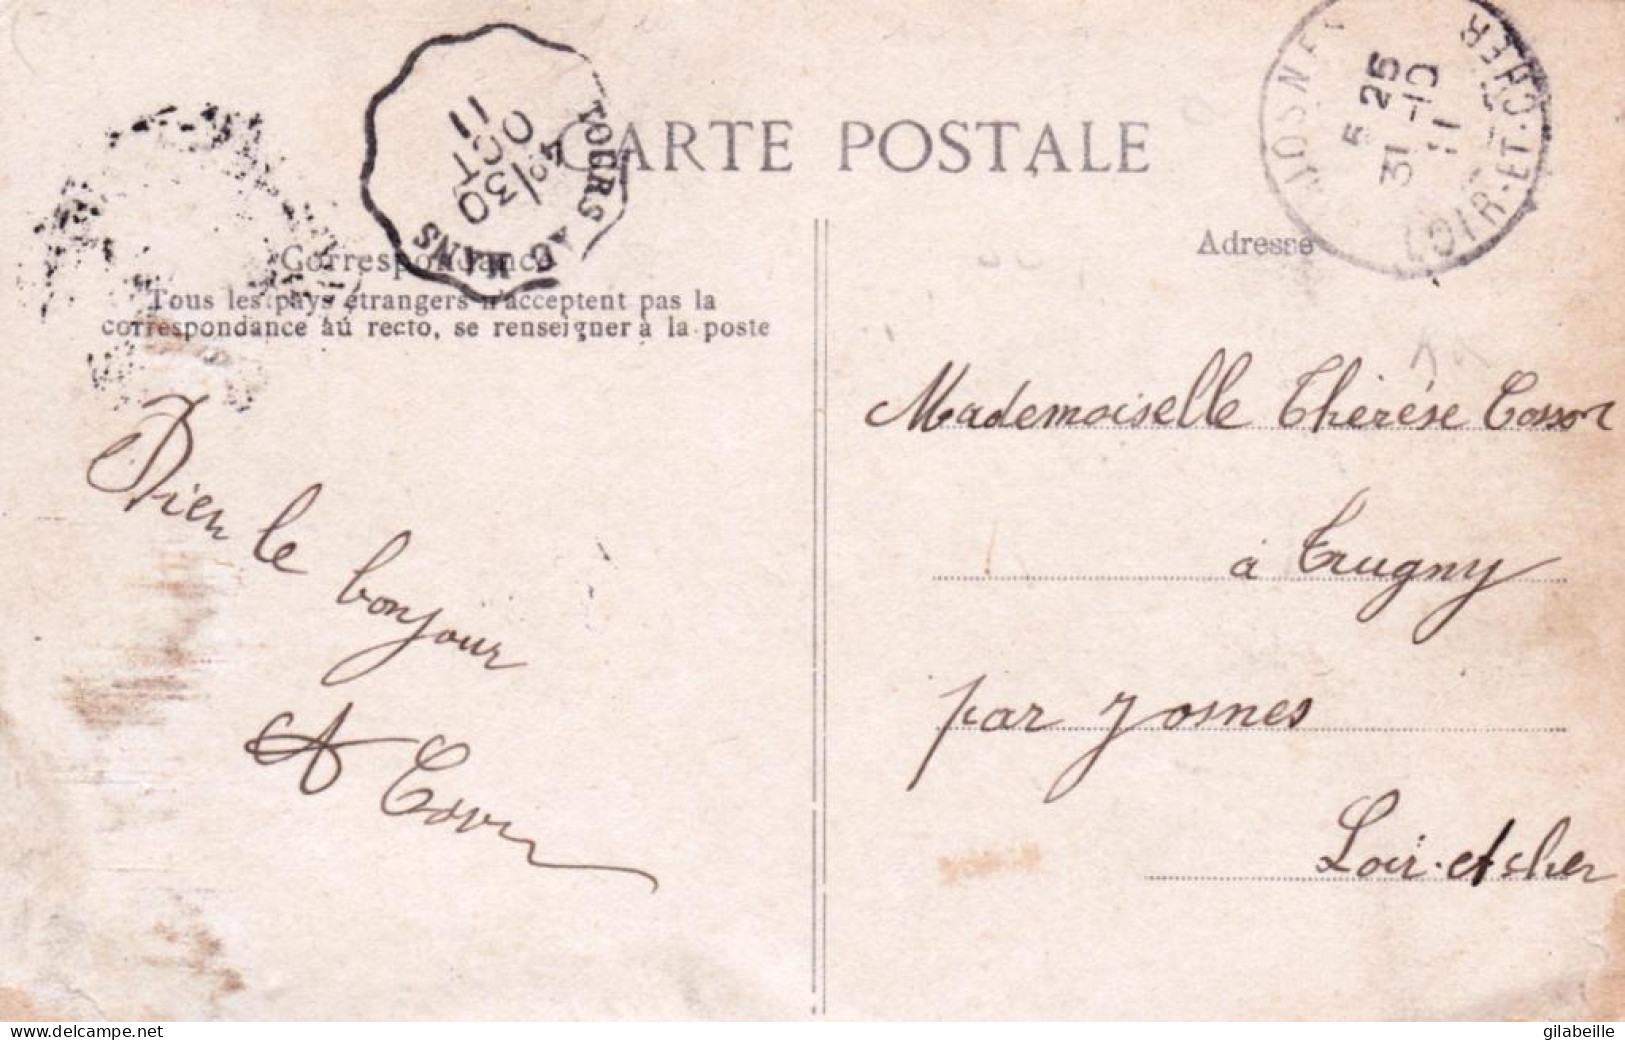 CARTE POSTALE
Correspondance
Tous les pays étrangers n'acceptent pas la
correspondance au recto, se renseigner à la poste
Adresse
TOURS AU MANS
30
OCT
11
JOSNES
LOIR-ET-CHER
5 25
31-10
11
Bien le bonjour
A Cosson
Mademoiselle Thérèse Cosson
à Trugny
par Josnes
Loir-et-cher
www.delcampe.net
gilabeille